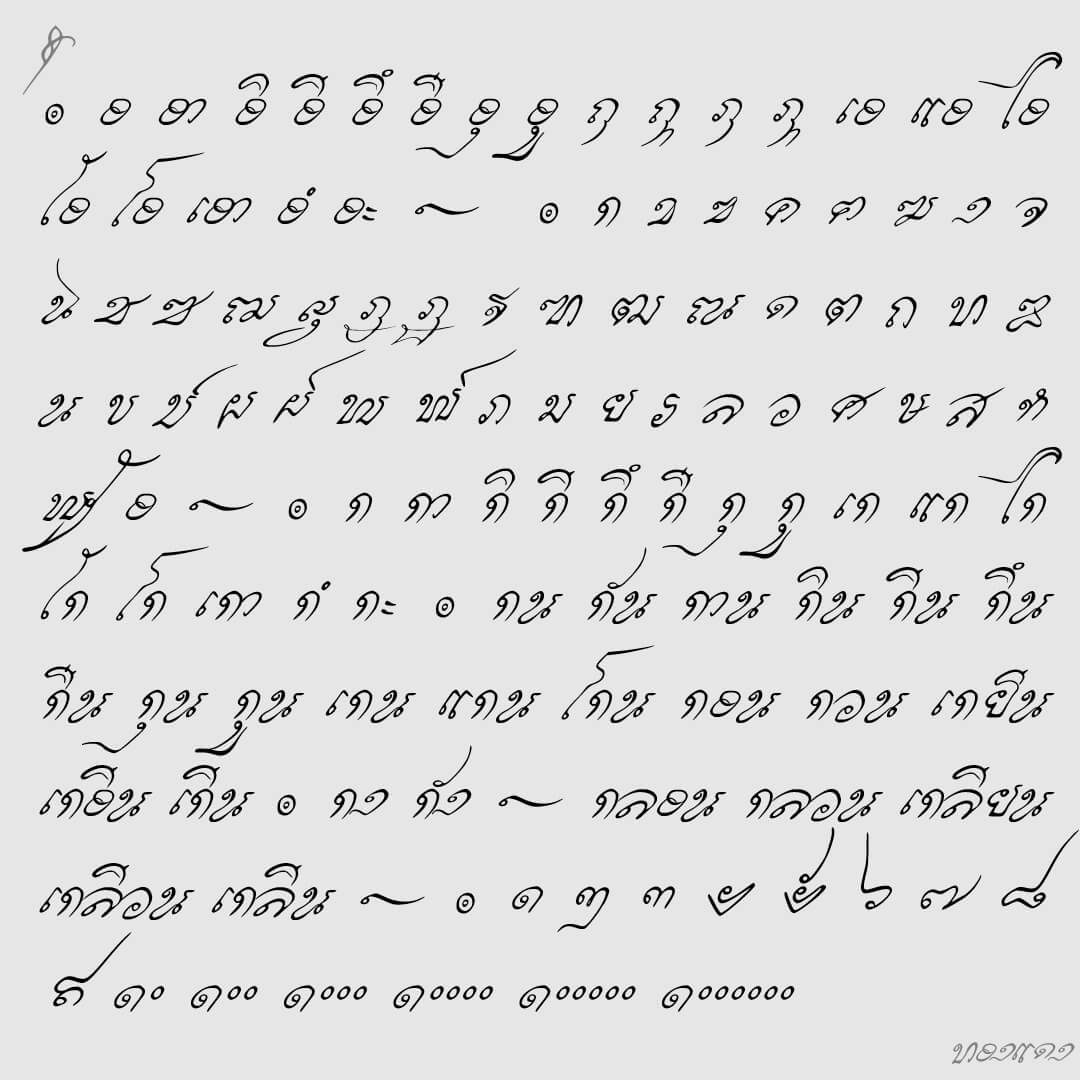 ๏ อ อา อิ อี อึ อื อุ อู ฤ ฤๅ ฦ ฦๅ เอ แอ ไอ
ใอ โอ เอา อํ อะ ~ ๏ ก ข ฃ ค ฅ ฆ ง จ
ฉ ช ซ ฌ ญ ฎ ฏ ฐ ฑ ฒ ณ ด ต ถ ท ธ
น บ ป ผ ฝ พ ฟ ภ ม ย ร ล ว ศ ษ ส ห
ฬ ฮ ~ ๏ ก กา กิ กี กึ กื กุ กู เก แก ไก
ใก โก เกา กํ กะ ๏ กน กัน กาน กิน กีน กึน
กืน กุน กูน เกน แกน โกน กอน กวน เกยีน
เกอืน เกีน ๏ กง กัง ~ กลอน กลวน เกลียน
เกลือน เกลีน ~ ๏ ๑ ๒ ๓ ๔ ๕ ๖ ๗ ๘
๙ ๑๐ ๑๐๐ ๑๐๐๐ ๑๐๐๐๐ ๑๐๐๐๐๐ ๑๐๐๐๐๐๐
ทองแดง